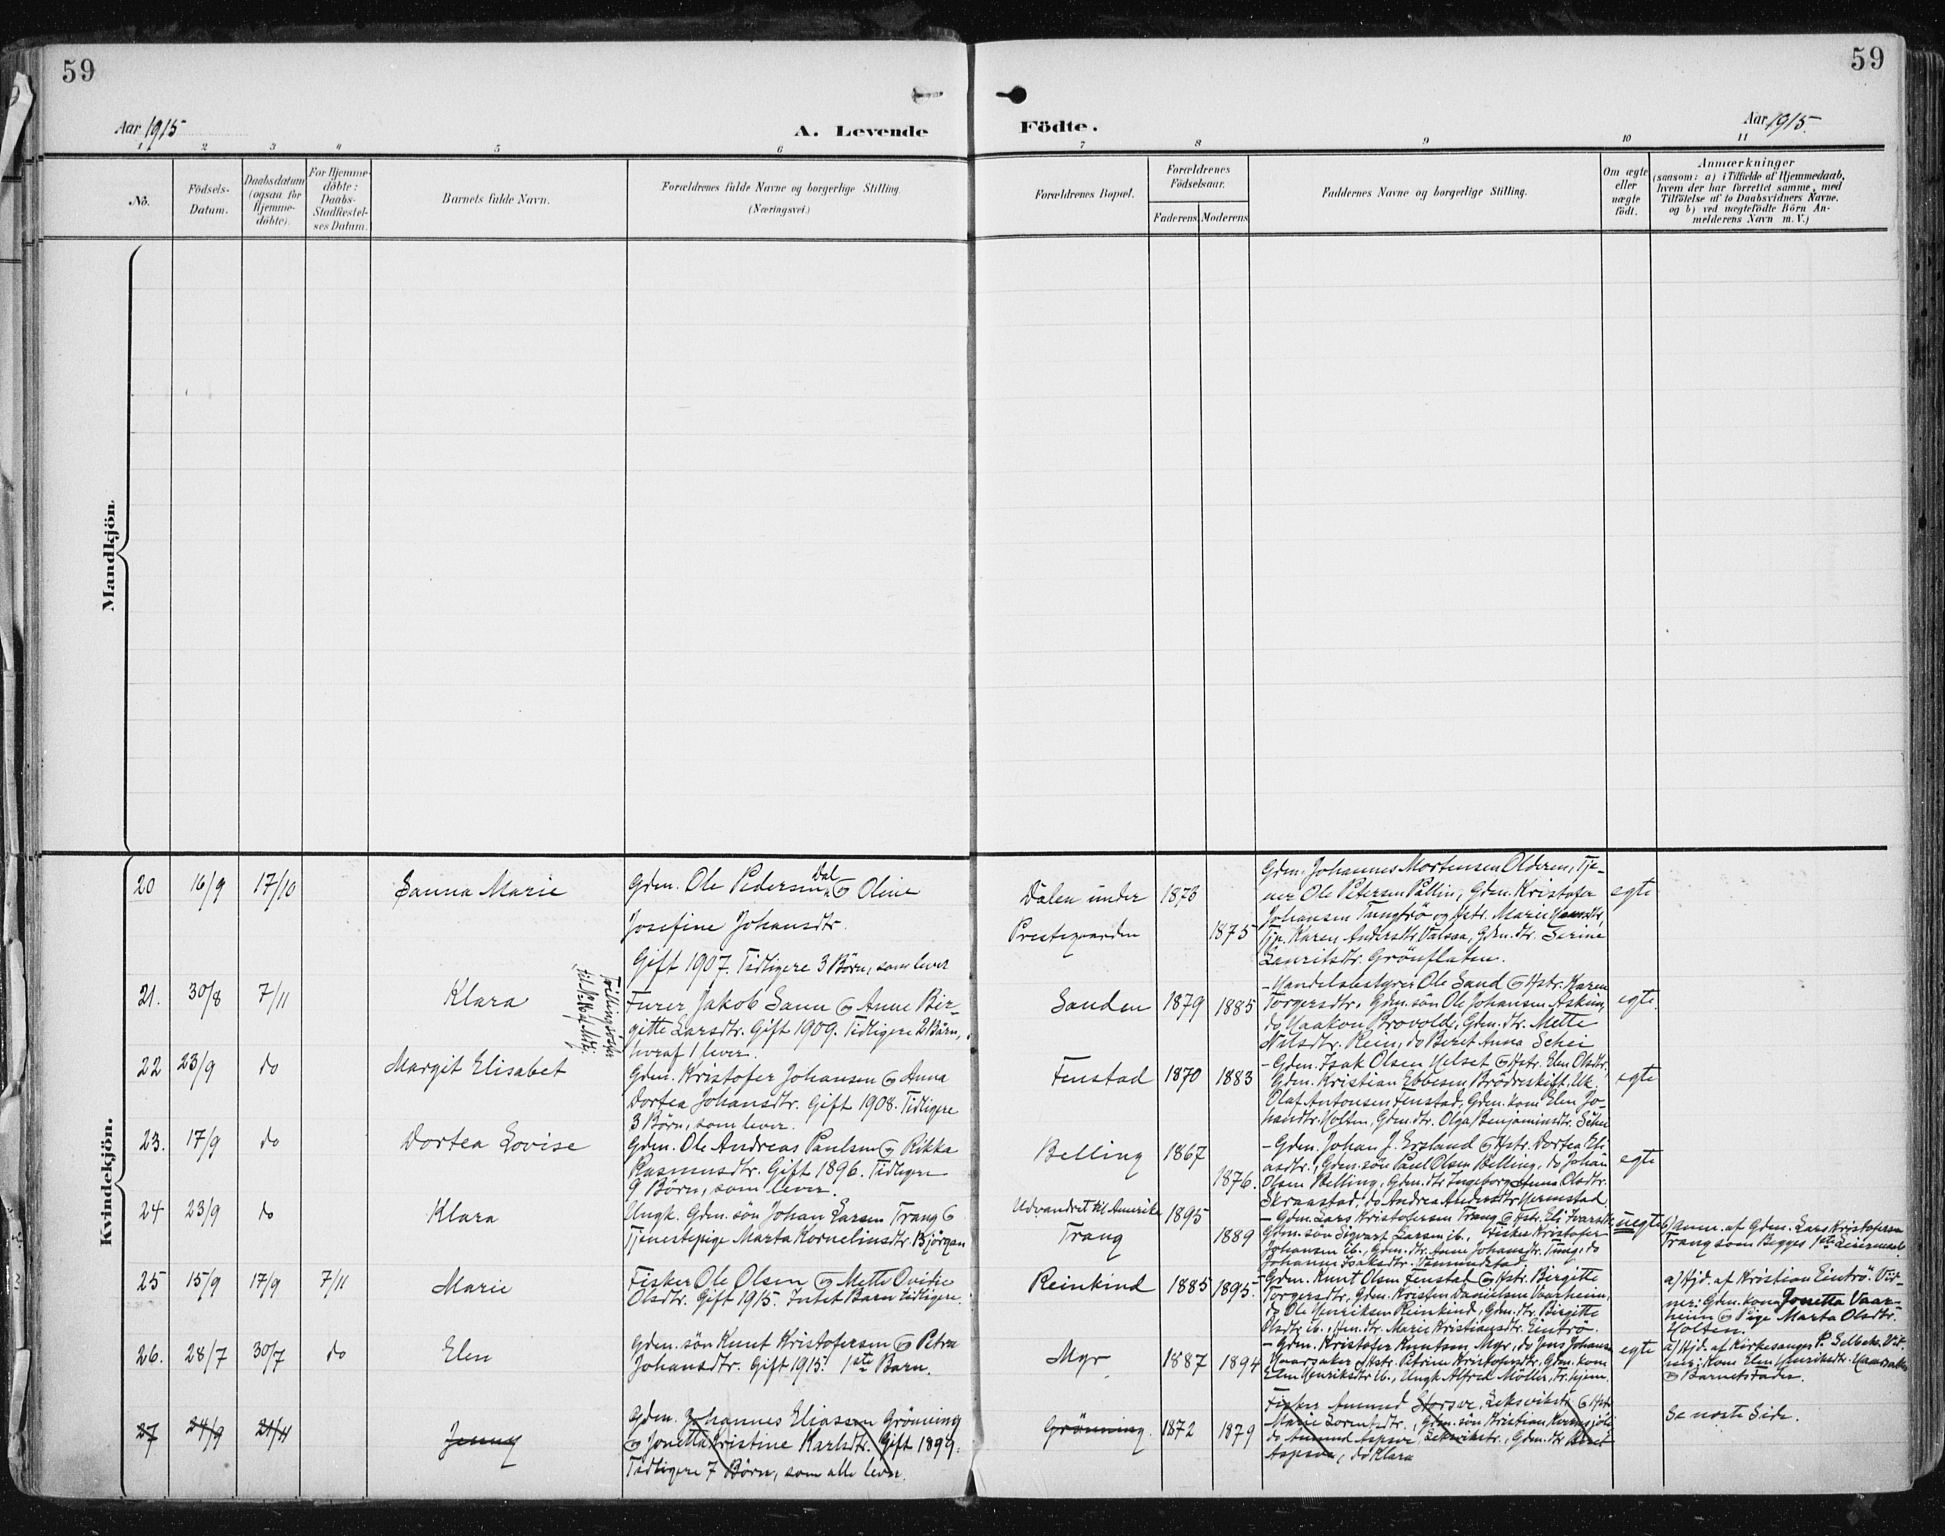 59
59
Aar 1915
A. Levende
Födte.
Aar 1915.
1
2
3
4
5
6
7
8
9
10
11
No.
Födsels-
Datum.
Daabsdatum
(ogsaa for
Hjemme-
döbte).
For Hjemme-
döbte:
Daabs-
Stadfæstel-
ses Datum.
Barnets fulde Navn.
Forældrenes fulde Navne og borgerlige Stilling
(Næringsvei.)
Forældrenes Bopæl.
Forældrenes
Födselsaar.
Faderens
Moderens
Faddernes Navne og borgerlige Stilling.
Om ægte
eller
uægte
födt.
Anmærkninger
(saasom: a) i Tilfælde af Hjemmedaab,
hvem der har forrettet samme, med
Tilföielse af to Daabsvidners Navne,
og b) ved uægtefödte Börn An-
melderens Navn m. V.)
Mandkjön.
Kvindekjön.
20
16/9
17/10
Sanna Marie
Gdm. Ole Pedersen Dal og Oline
Josefine Johansdtr.
Gift 1907. Tidligere 3 Börn, som lever
Dalen under
Prestegaarden
1873
1875
Gdm. Johannes Mortensen Olderen, Tje-
ner Ole Petersen Pallin, Gdm. Kristofer
Johansen Tungtrö og Hstr. Marie
Tjp. Karen Andersdtr. Valsaa, Gdm. dtr. Serine
Lauritsdtr. Grönflaten.
egte
21.
30/8
7/11
Klara
Tvillingsöster
til No.
Furer Jakob Sann og Anne Bir-
gitte Larsdtr. Gift 1909. Tidligere 2 Börn,
hvoraf 1 lever.
Sanden
1879
1885
- Handelsbestyrer Ole Sand og Hstr. Karen
Torgersdtr., Gdm. sön Ole Johansen Askim,
do Haakon Brovold, Gdm. dtr. Mette
Nilsdtr. Rein, do Beret Anna Schei
egte.
22
23/9
do
Margit Elisabet
Gdm. Kristofer Johansen og Anna
Dortea Johansdtr. Gift 1908. Tidligere
3 Börn, som lever.
Fenstad
1870
1883
- Gdm. Isak Olsen Helset og Hstr. Elen Olsdtr.
Gdm. Kristian Ebbesen Brödreskift, Uk.
Olaf Antonsen Fenstad, Gdm. kone Elen Jo-
hansdtr. Holten, Gdm. dtr. Olga Benjaminsdtr. Schei
egte
23.
17/9
do
Dortea Lovise
Gdm. Ole Andreas Paulsen og Rikka
Rasmusdtr. Gift 1896. Tidligere
9 Börn, som lever.
Belling
1867
1876.
- Gdm. Johan J. Ersland og Hstr. Dortea Eli-
asdtr., Gdm. sön Paul Olsen Belling, do Johan
Olsen Belling, Gdm. dtr. Ingeborg Anna Olsdtr.
Skraastad, do Andrea Andersdtr. Hermstad
egte
24
23/9
do
Klara
Ungk. Gdm. sön Johan Larsen Trang og
Tjenestepige Marta Korneliusdtr. Björgan
Udvandret til Amerika
Trang
1895
1889
- Gdm. Lars Kristofersen Trang og Hstr. Eli Ivarsdtr.
Gdm. sön Sigvart Larsen ib., Fisker Kristofer
Johansen ib., Gdm. dtr. Anne Johansdtr. Tung, do
Johanne Isaksdtr.
uegte
b) Anm. af Gdm. Lars Kristofersen
Trang som Begges 1ste Leiermaal
25
15/9
17/9
7/11
Marie
Fisker Ole Olsen og Mette Ovidie
Olsdtr. Gift 1915. Intet Barn tidligere.
Reinkind
1885
1895.
- Gdm. Knut Olsen Fenstad og Hstr. Birgitte
Torgersdtr., Gdm. Kristen Danielsen Vaarheim,
do Ole Henriksen Reinkind, Gdm. dtr. Birgitte
Olsdtr. ib., Gdm. dtr. Marie Kristiansdtr. Eintrö.
a) Hjd. af Kristian Eintrö. Vid-
ner: Gdm. kone Jonetta Vaar-
heim og Pige Marta Olsdtr.
Holten.
26.
28/7
30/7
do
Elen
Gdm. sön Knut Kristofersen og Petra
Johansdtr. Gift 1915. 1ste Barn.
Myr
1887
1894
- Gdm. Kristofer Knutsen Myr, do Jens Johansen
Haarsaker, Hstr. Petrine Kristofersdtr., Gdm. kone
Elen Henriksdtr. ib., Ungk. Alfred Möller, Tr.hjem.
egte
a) Hjd. af Kirkesanger P. Selbek. Vid-
ner: Kone Elen Henriksdtr. Haarsaker
og Barnets Fader.
27
24/9
21/11
Jenny
Gdm. Johannes Eliassen Grönning
og Jonetta Kristine Karlsdtr. Gift 1899.
Tidligere 7 Börn, som alle lever.
Grönning.
1872
1879
Fisker Amund Storsve, Leksviken og Hstr.
Marie Lorentsdtr., Gdm. sön Kristian
do Amund Aspsve, Leksvikstr., Gdm. dtr. Beret
Aspsve, do Klara
Se næste Side.